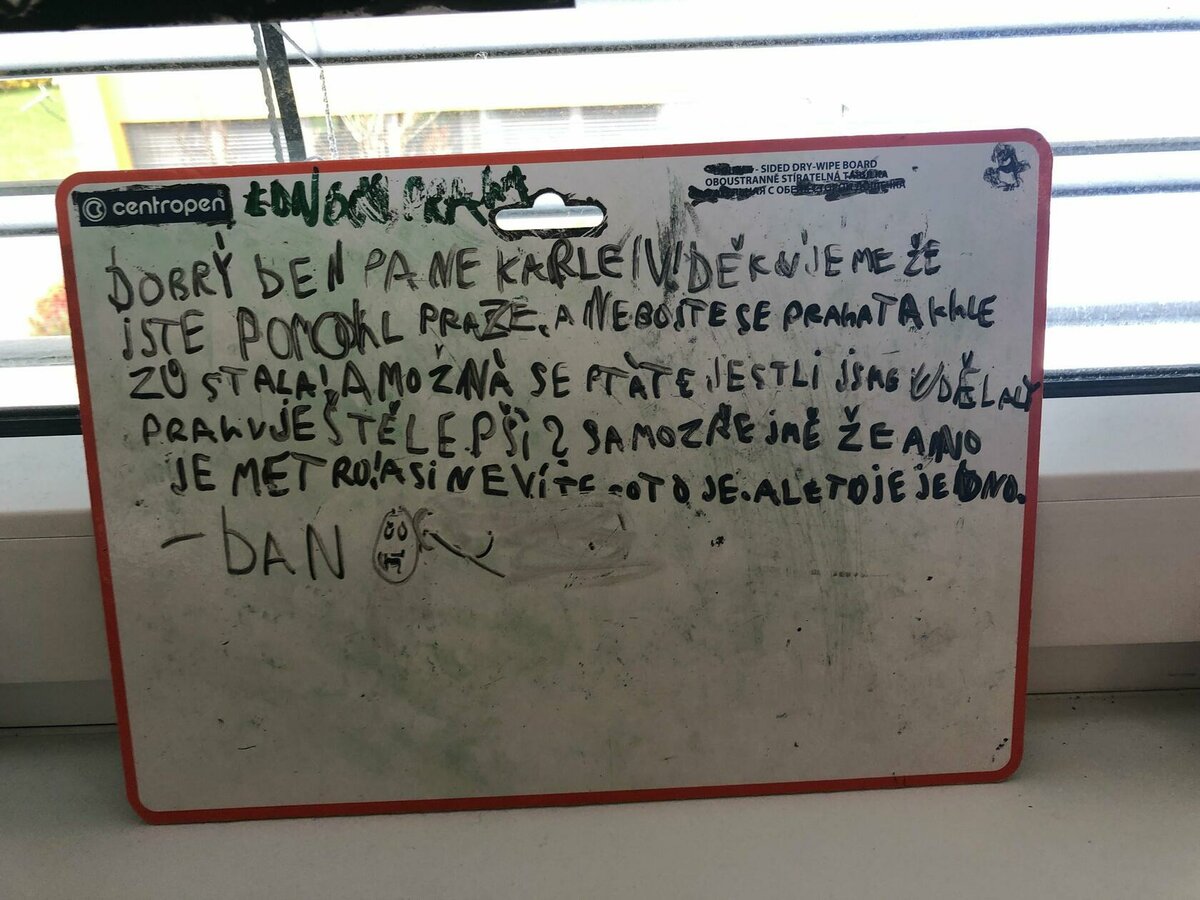 centropen
- SIDED DRY-WIPE BOARD
OBOUSTRANNĚ STÍRATELNÁ TABULKA
DOBRÝ DEN PANE KARLE IV! DĚKUJEME ŽE
JSTE POMOHL PRAZE, A NEBOJTE SE PRAHA TAKHLE
ZŮSTALA! A MOŽNÁ SE PTÁTE JESTLI JSME UDĚLALY
PRAHU JEŠTĚ LEPŠÍ? SAMOZŘEJMĚ ŽE ANO
JE METRO! ASI NEVÍTE CO TO JE. ALE TO JE JEDNO.
- DAN